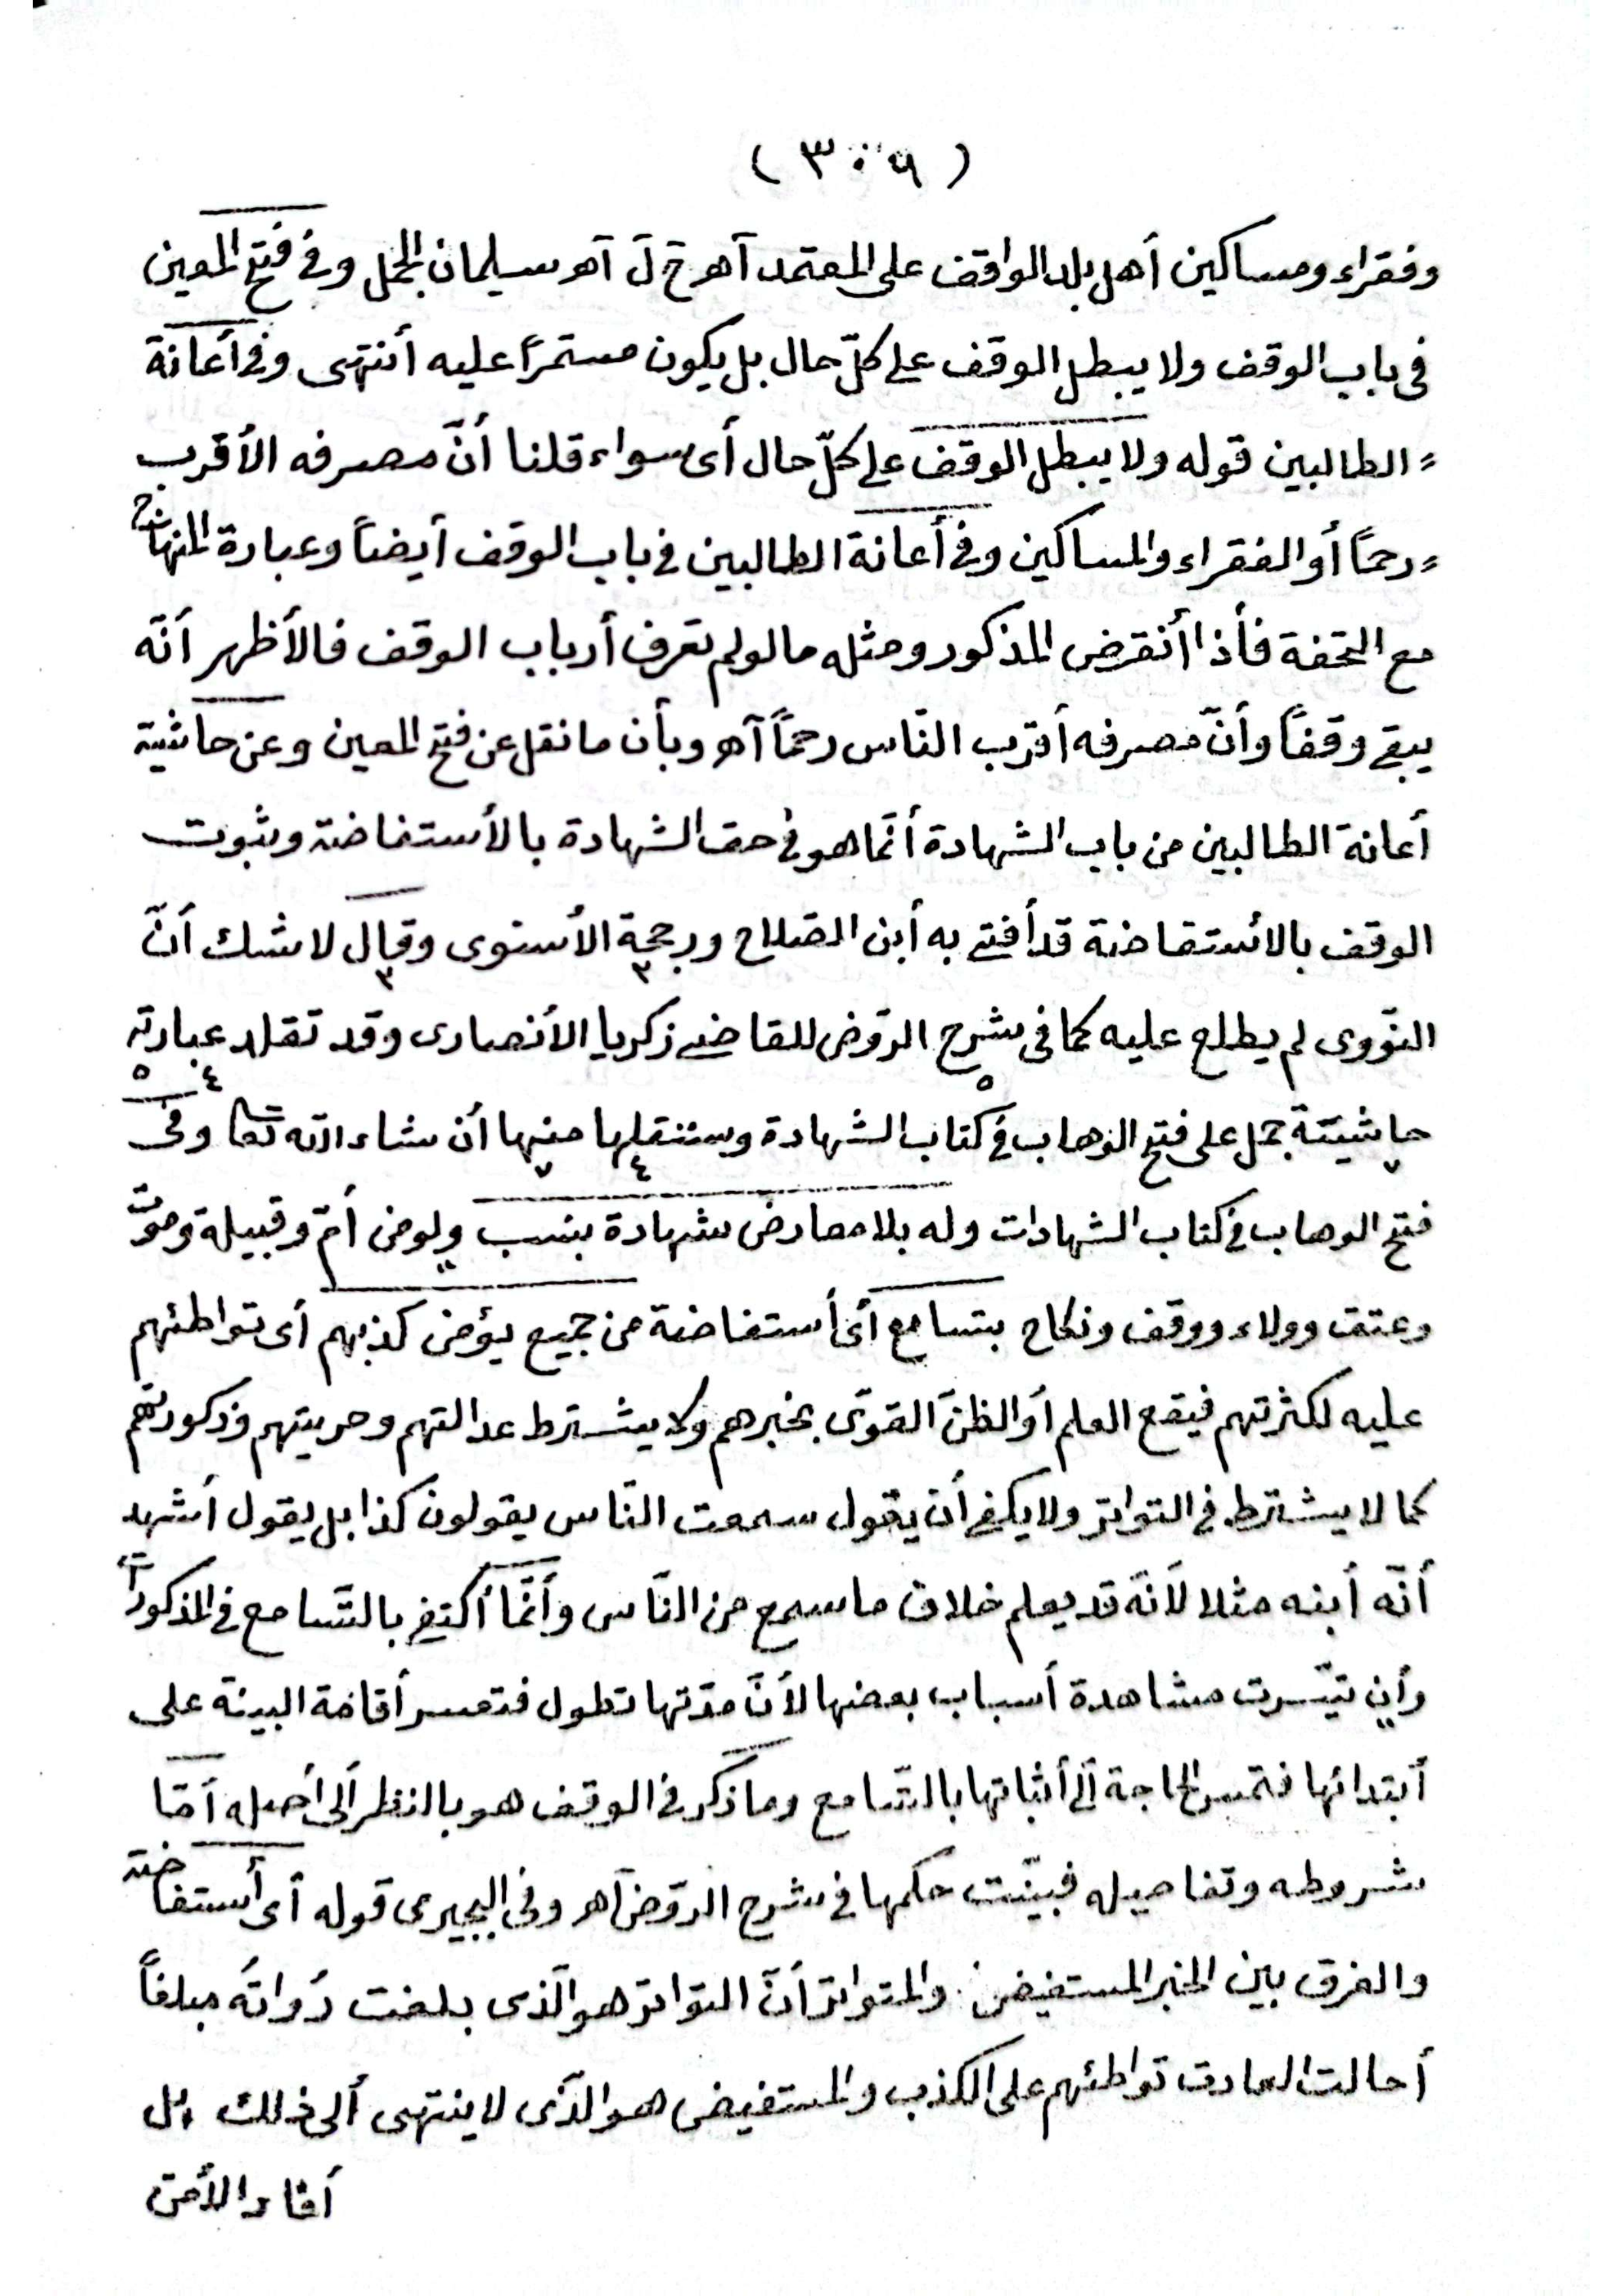 ( ٣٠٩ )
وفقراء ومساكين أهل بلد الواقف على المعتمد آهـ حَ لَ آهـ سليمان الجمل وفى فتح المعين
فى باب الوقف ولا يبطل الوقف على كلّ حال بل يكون مستمرًا عليه أنتهى وفى أعانة
= الطالبين قوله ولا يبطل الوقف على كلّ حال أى سواء قلنا أنّ مصرفه الأقرب
= رحمًا أو الفقراء والمساكين وفى أعانة الطالبين فى باب الوقف أيضاً وعبارة المنهاج
مع التحفة فأذا أنقرض المذكور ومثله مالو لم تعرف أرباب الوقف فالأظهر أنّه
يبقى وقفاً وأنّ مصرفه أقرب النّاس رحماً آهـ وبأن ما نقل عن فتح المعين وعن حاشية
أعانة الطالبين من باب الشهادة أنّما هو فى حق الشهادة بالأستفاضة وثبوت
الوقف بالأستفاضة قد أفتى به أبن الصّلاح ورجحه الأسنوى وقال لا شك أنّ
٣ ٣
النّووى لم يطلع عليه كما فى شرح الرّوض للقاضى زكريا الأنصارى وقد تقلد عبارته
٥ ٤ ٥
حاشيّة جمل على فتح الوهاب فى كتاب الشهادة وسننقلها منها أن شاء الله تعا وفى
٤
فتح الوهاب فى كتاب الشهادات وله بلا معارض شهادة بنسب ولو من أمّ وقبيلة وموت
وعتق وولاء ووقف ونكاح بتسامع أى أستفاضة من جميع يؤمن كذبهم أى تواطئهم
عليه لكثرتهم فيقع العلم أو الظنّ القوىّ بخبرهم ولا يشترط عدالتهم وحريتهم وذكورتهم
كما لا يشترط فى التواتر ولا يكفى أن يقول سمعت النّاس يقولون كذا بل يقول أشهد
أنّه أبنه مثلا لأنّه قد يعلم خلاف ما سمع من النّاس وأنّما أكتفى بالتّسامع فى المذكورات
وأن تيسّرت مشاهدة أسباب بعضها لأنّ مدّتها تطول فتعسر أقامة البينة على
أبتدائها فتمس الحاجة ألى أثباتها بالتّسامع وما ذكر فى الوقف هو بالنظر ألى أصله أمّا
شروطه وتفاصيله فبيّنت حكمها فى شرح الرّوض آهـ وفى البجيرى قوله أى أستفاضة
والفرق بين الخبر المستفيض والمتواتر أنّ التواتر هو الّذى بلغت رُواتهُ مبلغاً
أحالت العادة تواطئهم على الكذب والمستفيض هو الّذى لا ينتهى ألى ذلك بل
أفاد الأمن